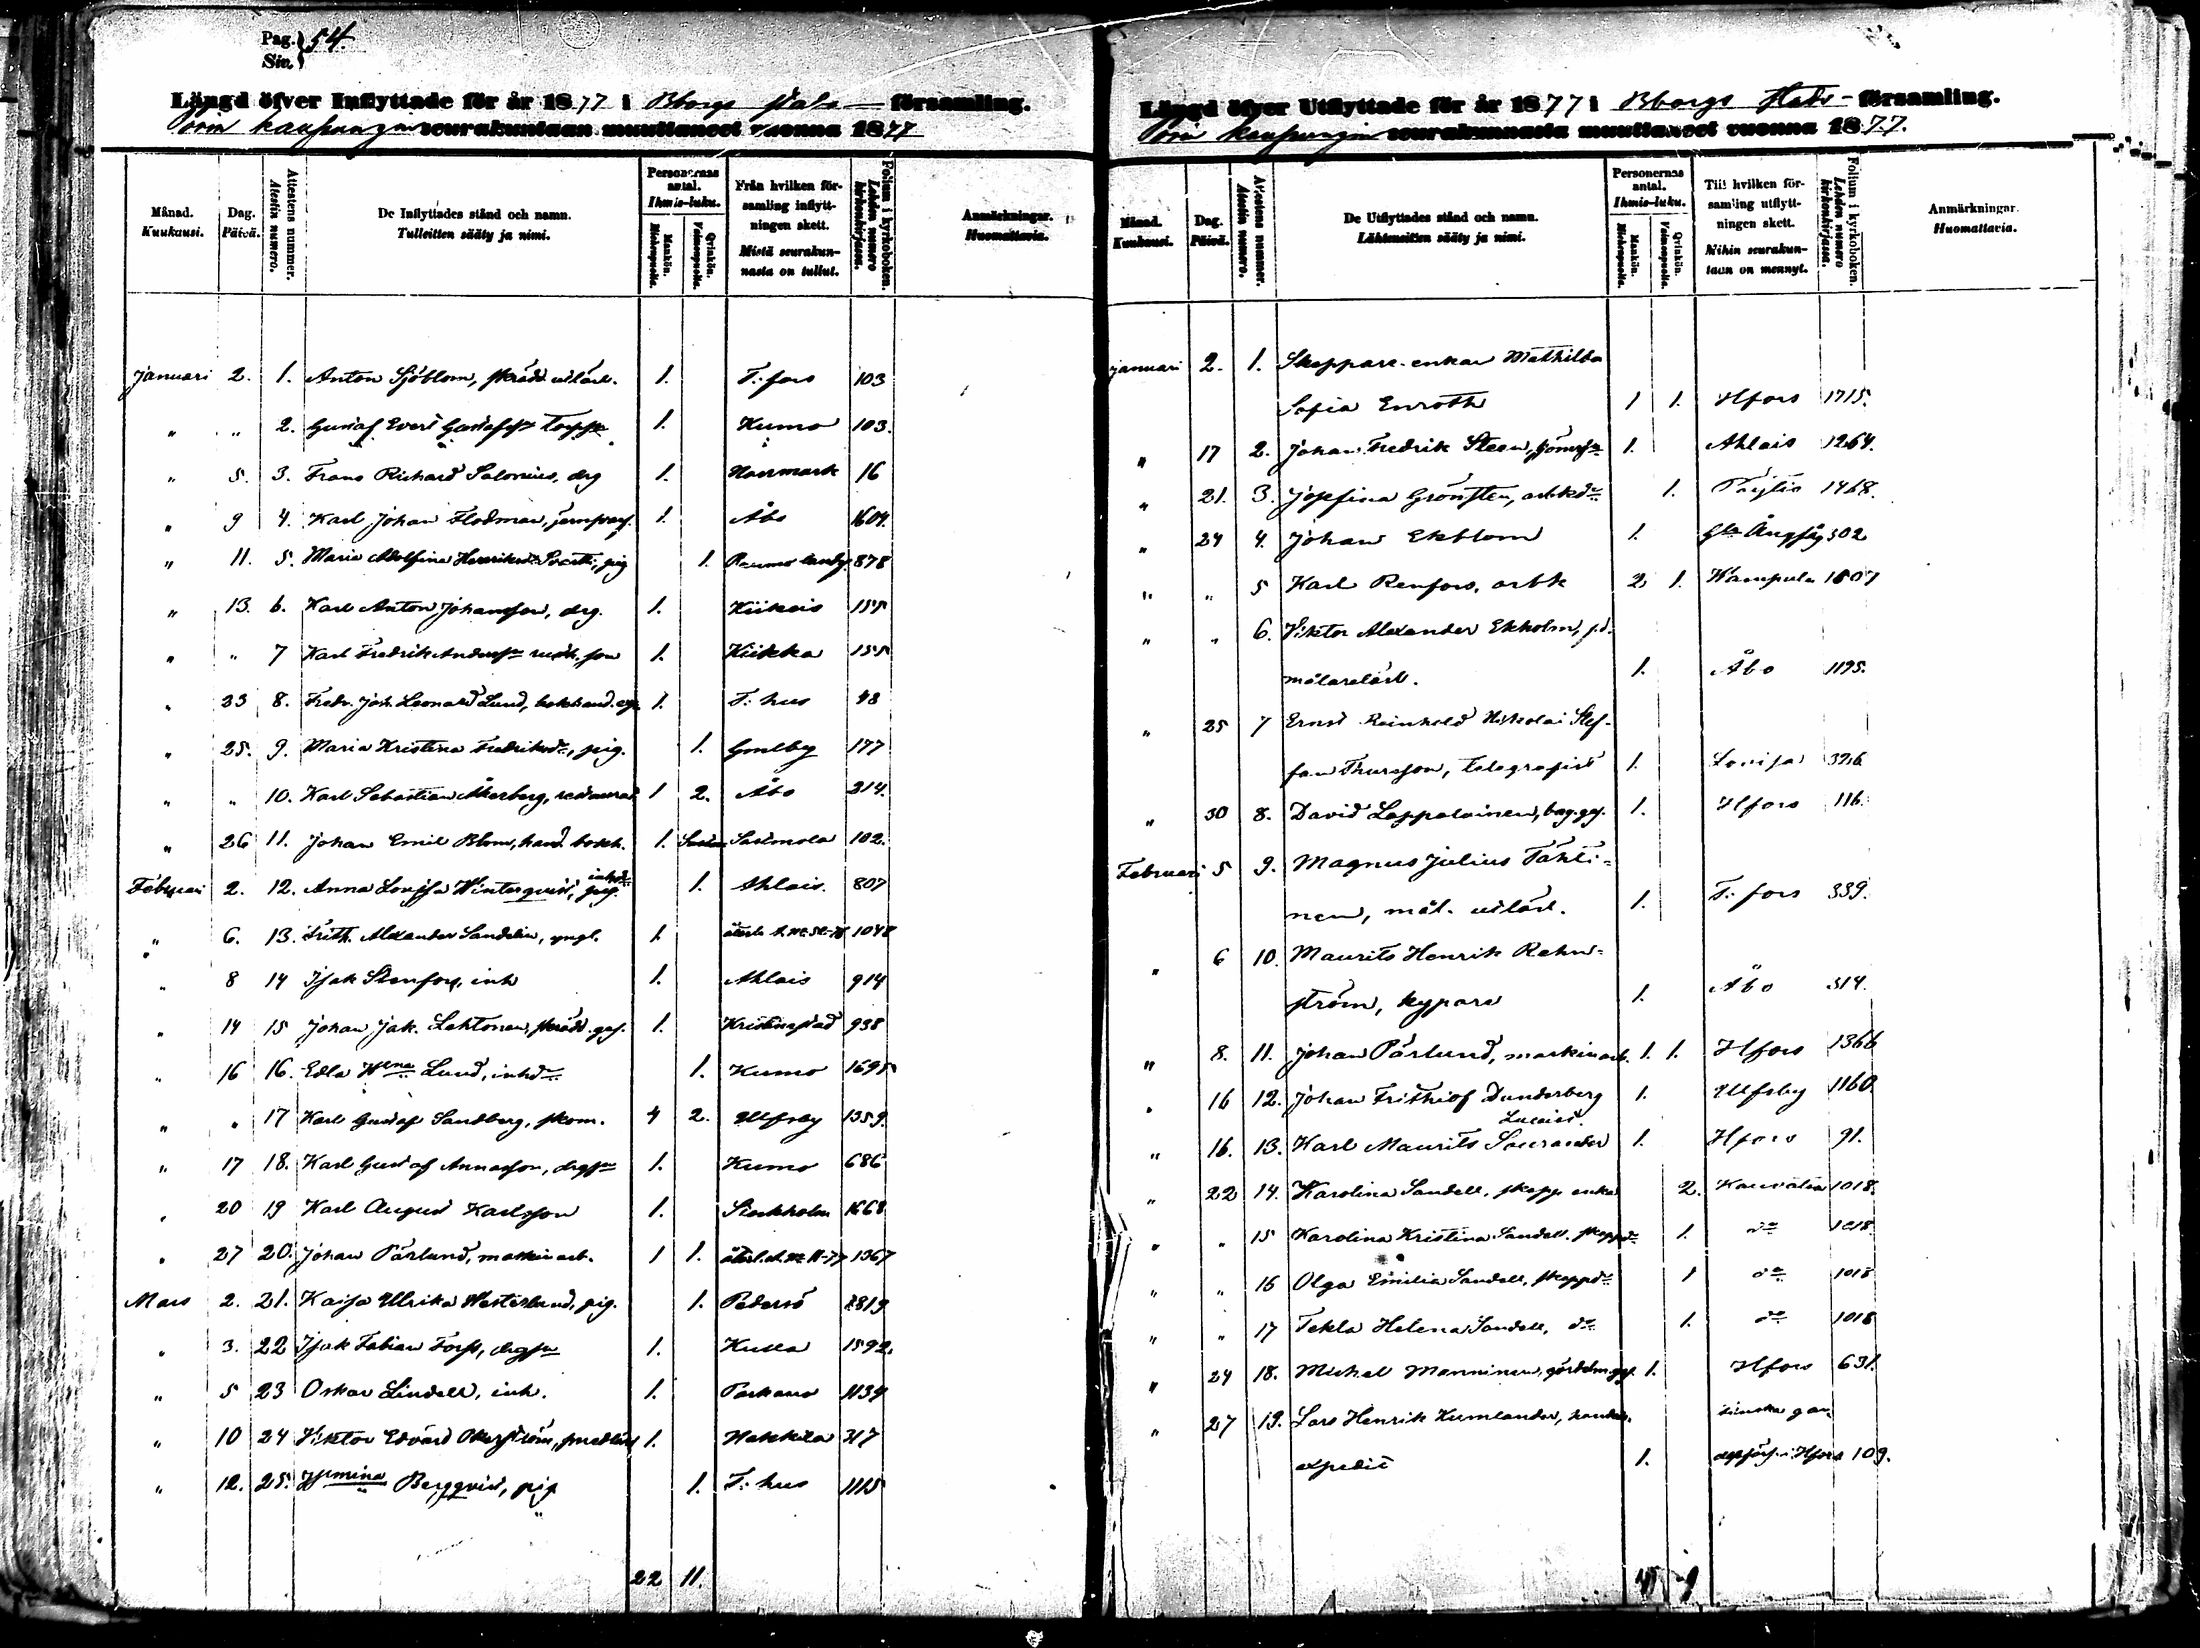 Pag. } 54.
Siv.
Längd öfver Inflyttade för år 1877 i Bborgs stads församling.
Porin kaupungin seurakuntaan muuttaneet vuonna 1877
Månad. Kuukausi.
Dag. Päivä.
Attestens nummer. Atestin numero.
De Inflyttades stånd och namn. Tulleitten sääty ja nimi.
Personernas antal. Ihmis-luku.
Mankön. Miehenpuolia.
Qvinkön. Vaimonpuolia.
Från hvilken församling inflyttningen skett. Mistä seurakunnasta on tullut.
Folium i kyrkoboken. Lehden numero kirkonkirjassa.
Anmärkningar. Huomattavia.
Januari 2. 1. Anton Sjöblom, skrädd. utlärl. 1. T:fors 103
" " 2. Gustaf Evert Gustafss. 1. Kumo 103.
" 5. 3. Frans Richard Salonius, drg 1. Norrmark 16
" 9 4. Karl Johan Flodman, 1. Åbo 1604.
" 11. 5. Maria Adolfina Henriksdr pig 1. Raumo landsf 878
" 13. 6. Karl Anton Johansson, drg. 1. Kiikois 155
" " 7 Karl Fredrik Anderss. son 1. Kiikka 155
" 23 8. Fredr. Joh. Leonard Lund, bokhand. 1. T:hus 48
" 25. 9. Maria Kristina Fredriksdr, pig. 1. Gamlby 177
" " 10. Karl Sebastian Åkerberg, 1 2. Åbo 214.
" 26 11. Johan Emil Blom, hand. bokh. 1. Sastmola 102.
Februari 2. 12. Anna Lovisa Winterqvist, inhdr pig. 1. Ahlais. 807
" 6. 13. Frith. Alexander Sandelin, yngl. 1. 1048
" 8 14 Isak Stenfors, inh 1. Ahlais 914
" 14 15 Johan Jak. Lehtonen, skrädd. ges. 1. Kristinestad 938
" 16 16. Edla Wilhna Lund, inhdr 1. Kumo 1695
" " 17 Karl Gustaf Sandberg, skom. 4 2. Ulfsby 1359.
" 17 18. Karl Gustaf Annasson, drgsn 1. Kumo 686
" 20 19 Karl August Karlsson 1. Stockholm 1668
" 27 20. Johan Pärlund, maskinarb. 1 1. återl. att. No 11-77 1367
Mars 2. 21. Kaisa Ulrika Westerlund, pig. 1. Pedersö 1819
" 3. 22 Isak Fabian Forss, drgsn 1. Kulla 1592.
" 5 23 Oskar Lindell, inh. 1. Parkano 1139
" 10 24 Viktor Edvard Åkerström, 1. Nakkila 317
" 12. 25. Hmina Bergqvist, pig 1. T:hus 1115
22 11.
Längd öfver Utflyttade för år 1877 i Bborgs Stads-församling.
Porin kaupungin seurakunnasta muuttaneet vuonna 1877.
Månad. Kuukausi.
Dag. Päivä.
Attestens nummer. Atestin numero.
De Utflyttades stånd och namn. Lähteneitten sääty ja nimi.
Personernas antal. Ihmis-luku.
Mankön. Miehenpuolia.
Qvinkön. Vaimonpuolia.
Till hvilken församling utflyttningen skett. Mihin seurakuntaan on mennyt.
Folium i kyrkoboken. Lehden numero kirkonkirjassa.
Anmärkningar. Huomattavia.
Januari 2. 1. Skeppare-enkan Mathilda
Sofia Enroth 1 1. Hfors 1715.
" 17 2. Johan Fredrik Steen, 1. Ahlais 1264.
" 21. 3. Josefina Grönsten, arbkdr 1. Pöytis 1468.
" 24 4. Johan Ekblom 1. 502
" " 5 Karl Renfors, arbk 2 1. Kumpula 1507
" " 6. Viktor Alexander Ekholm, f.d.
målarelärl. 1. Åbo 1195.
" 25 7 Ernst Reinhold Nikolai Stef-
fan Thuresson, telegrafist 1. Lovisa 326
" 30 8. David Lappalainen, bag. ges. 1. Hfors 116.
Februari 5 9. Magnus Julius Tähti-
nen, mål. utlärl. 1. T:fors 339.
" 6 10. Maurits Henrik Rehn-
ström, kypare 1. Åbo 314.
" 8. 11. Johan Pärlund, maskinarb. 1. 1. Hfors 1366
" 16 12. Johan Frithiof Dunderberg 1. Ulfsby 1160.
" 16. 13. Karl Maurits Sourander 1. Hfors 91.
" 22 14. Karolina Sandell, skepp. enka 2. 1018.
" " 15 Karolina Kristina Sandell, skeppdr 1. do 1018
" " 16 Olga Emilia Sandell, skeppdr 1 do 1018
" " 17 Tekla Helena Sandell, do 1. do 1018
" 24 18. Michel Manninen, 1. Hfors 631.
" 27 19. Lars Henrik Kumlander, finska gar.
expedit 1. Hfors 109.